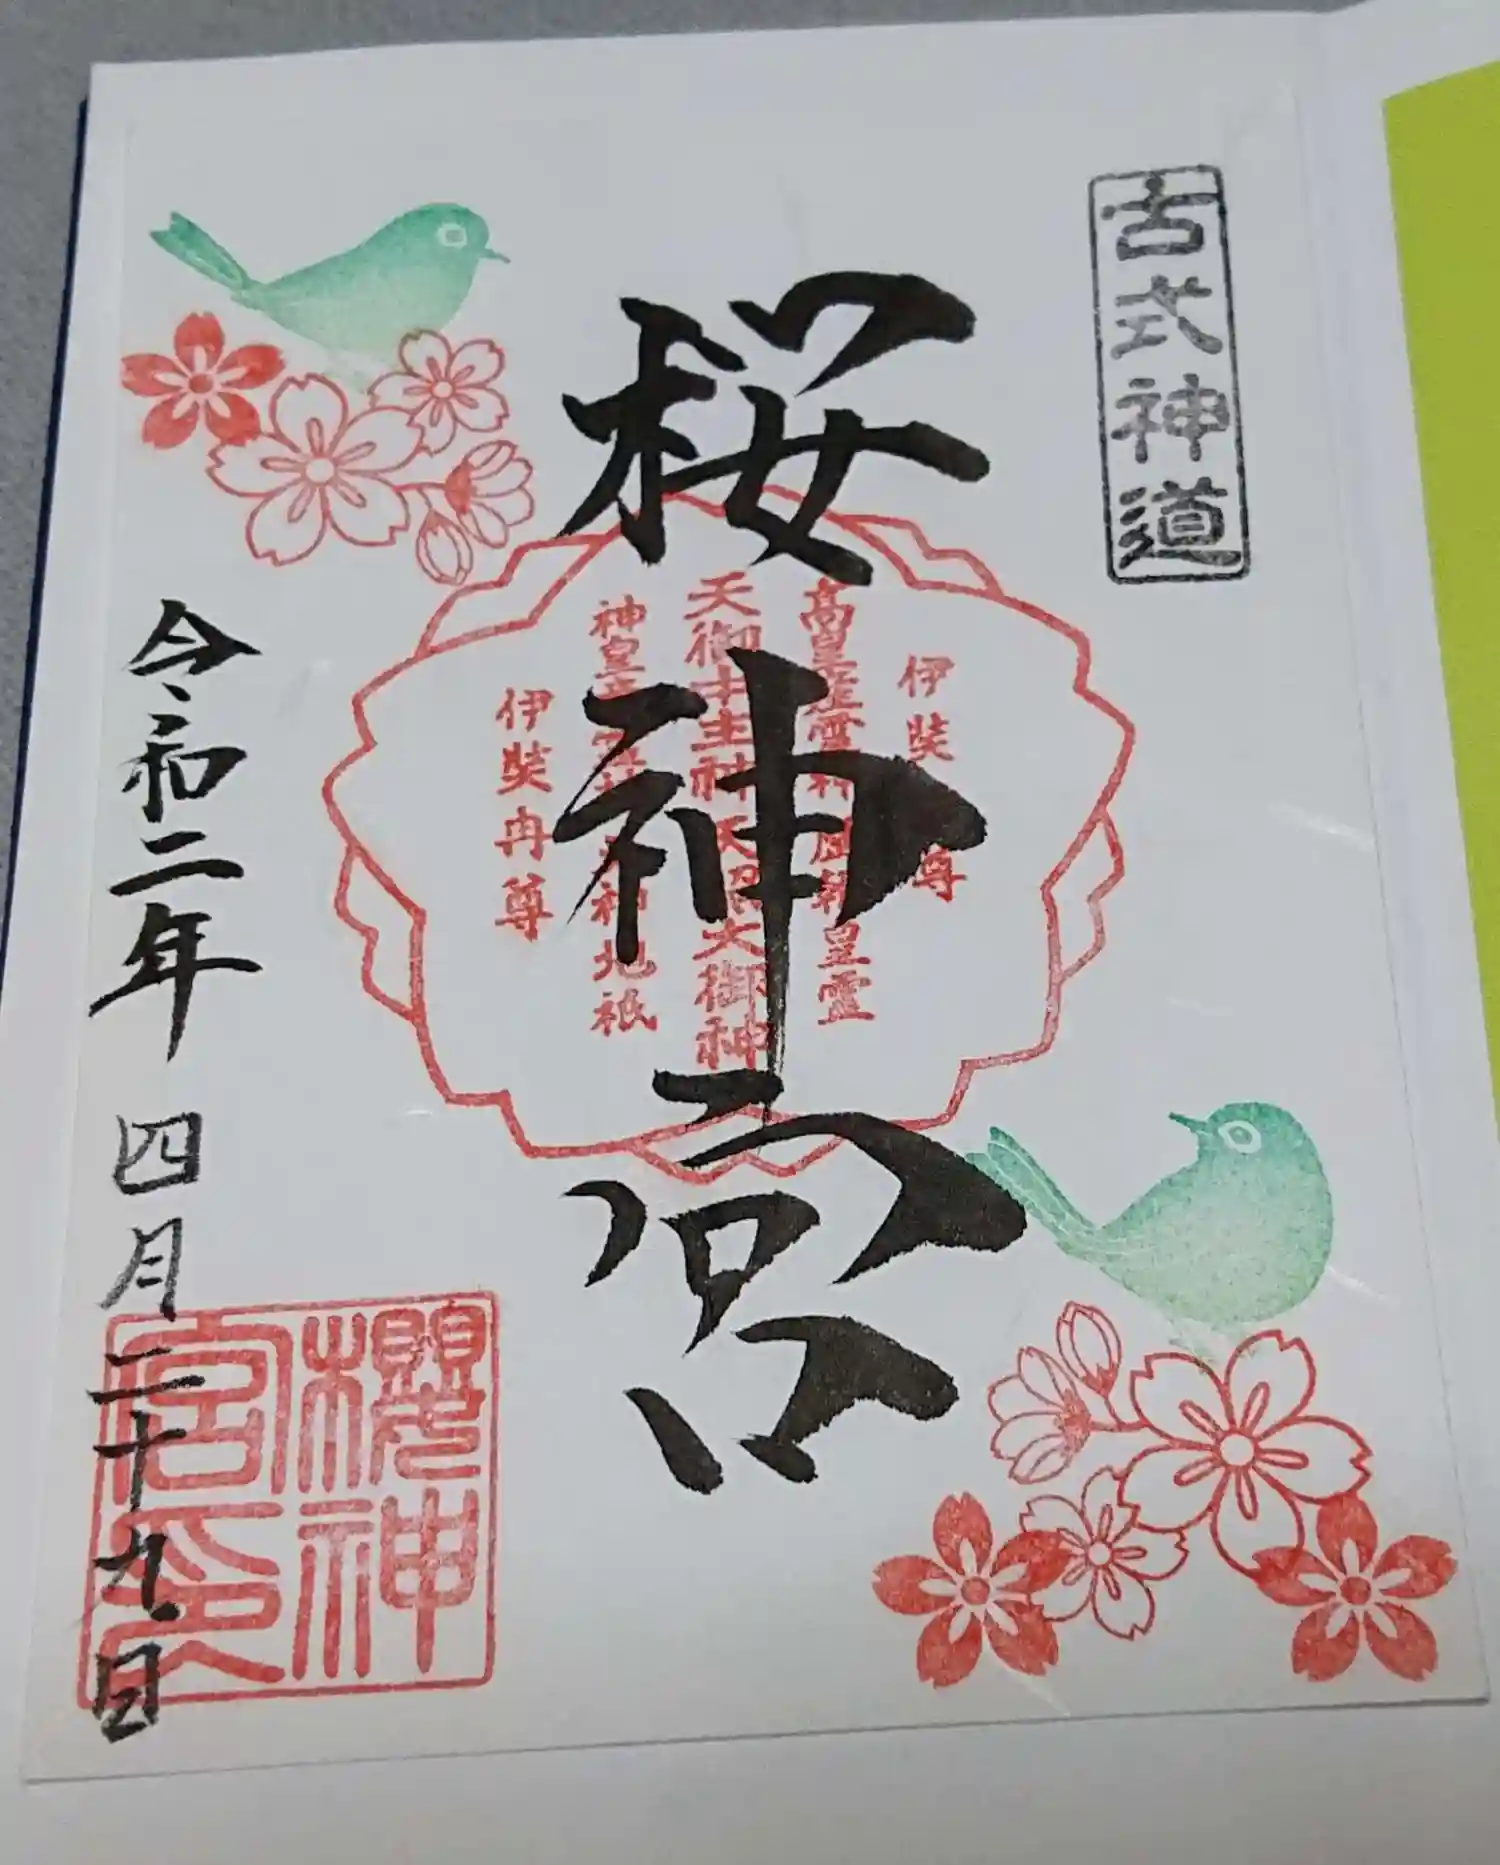 古式神道
桜神宮
伊弉
尊
高皇産霊神
歴朝皇霊
天御中主神
天照大御神
神皇産霊神
天神地祇
伊弉冉尊
令和二年 四月二十九日
櫻神
宮印